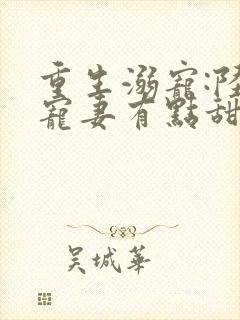 重生溺寵:陸
寵妻有點甜
吳城華